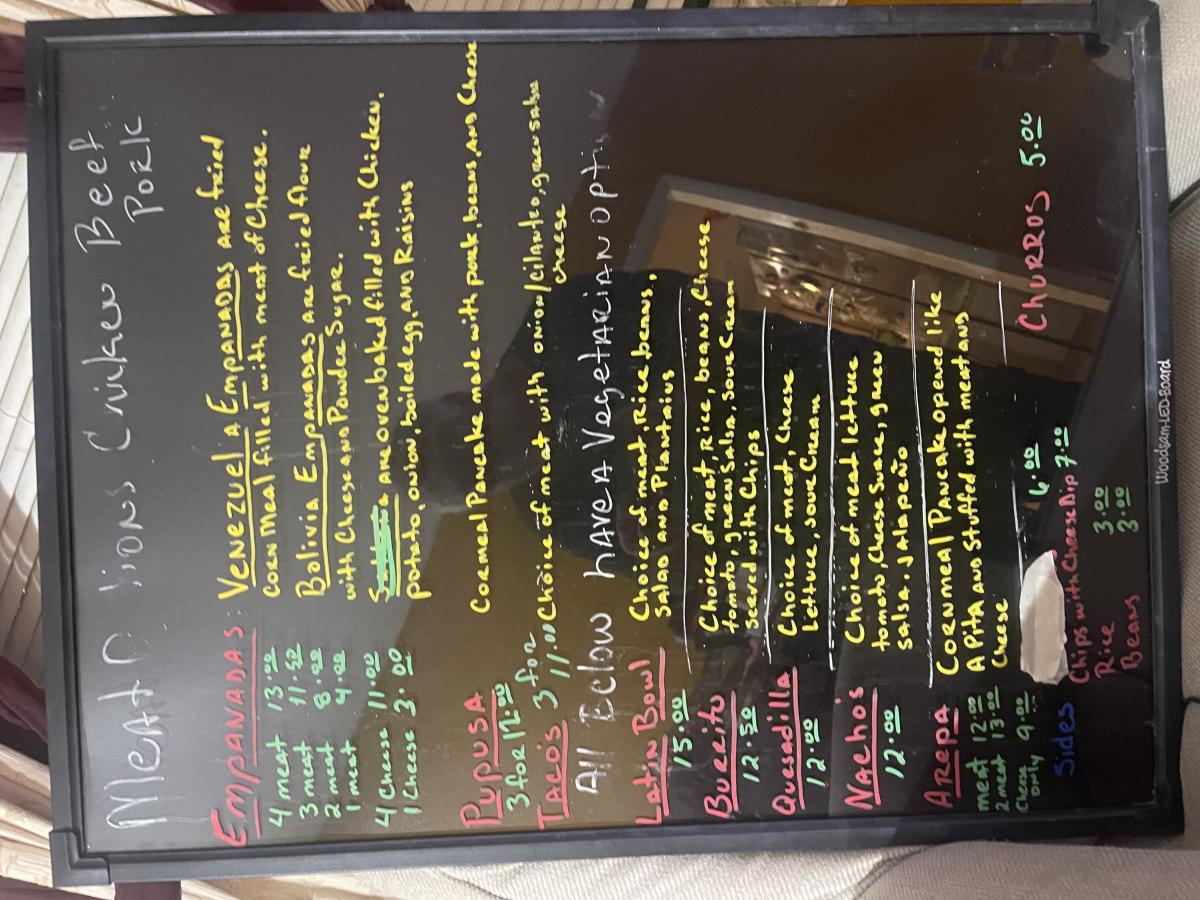 Meat O tions Chicken Beef
Pork
EMPANADAS: VENEZUELA EMPANADAS are fried
4 meat 13.00 corn Meal filled with meat of Cheese.
3 meat 11.50 Bolivia EMPANADAS are fried flour
2 meat 8.00 with Cheese and Powdee Sugar.
1 meat 4.00
4 Cheese 11.00 are oven baked filled with Chicken,
1 Cheese 3.00 potato, onion, boiled egg, and Raisins
PUPUSA Cormeal Pancake made with pork, beans, and Cheese
3 for 12.00
TACO'S 3 for 11.00 Choice of meat with onion/cilantro, green salsa
cheese
All Below have A VegetARIAN Opti
LATIN Bowl Choice of meat, Rice beans,
15.00 SALAD AND PlANTAiNS
BURRITO Choice of meat, Rice, beans, Cheese
12.50 tomato, green Salsa, Sour Cream
seered with Chips
Quesadilla Choice of meat, Cheese
12.00 Lettuce, Sour Cream
NACHO'S Choice of meat lettuce
12.00 tomato, Cheese Suace, green
salsa, Jalapeño
AREPA CORNMEAL PANCAKE opened like
meat 12.00 A PITA AND Stuffed with meat AND
2 meat 13.00 Cheese
Cheese only 9.00
Sides 6.00 ChURROS 5.00
Chips with Cheese Dip 7.00
Rice 3.00
Beans 3.00
Woodsam LED Board